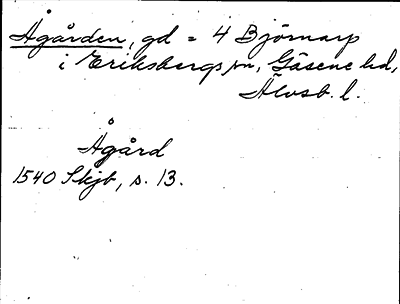 Ågården, gd = 4 Björnarp
i Eriksbergs sn, Gäsene hd,
Älvsb. l.
Ågård
1540 Skjb, s. 13.